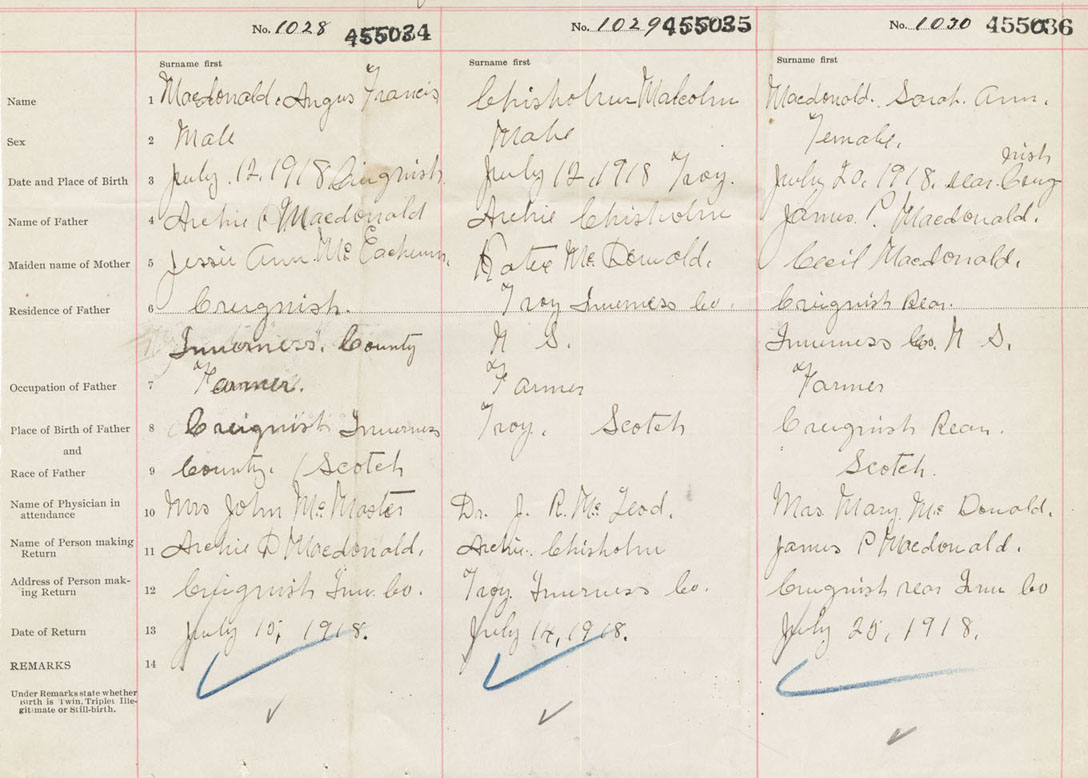 No. 1028 455034 No. 1029 455035 No. 1030 455036
Surname first Surname first Surname first
Name 1 Macdonald. Angus Francis Chisholm Malcolm Macdonald. Sarah. Ann.
Sex 2 Male Male Female.
Date and Place of Birth 3 July. 12. 1918 Criegnish July 12, 1918 Troy. July 20, 1918. rear. Creig nish
Name of Father 4 Archie D Macdonald Archie Chisholm James. P. Macdonald.
Maiden name of Mother 5 Jessie Ann Mc Eachern. Katie Mc Donald. Cecil Macdonald.
Residence of Father 6 Creignish. Troy Inverness Co. Creignish Rear.
Inverness. County N S. Inverness Co. N S.
Occupation of Father 7 Farmer. Farmer Farmer
Place of Birth of Father 8 Creignish Inverness Troy. Scotch Creignish Rear.
and
Race of Father 9 County. (Scotch Scotch.
Name of Physician in
attendance 10 Mrs John Mc Master Dr. J. R. Mc Leod. Mrs. Mary. Mc Donald.
Name of Person making
Return 11 Archie D Macdonald. Archie. Chisholm James P Macdonald.
Address of Person mak-
ing Return 12 Creignish Inv. Co. Troy Inverness Co. Creignish rear Inv Co
Date of Return 13 July 15, 1918. July 14, 1918. July 25, 1918.
REMARKS 14
Under Remarks state whether
Birth is Twin, Triplet Ille-
gitimate or Still-birth.